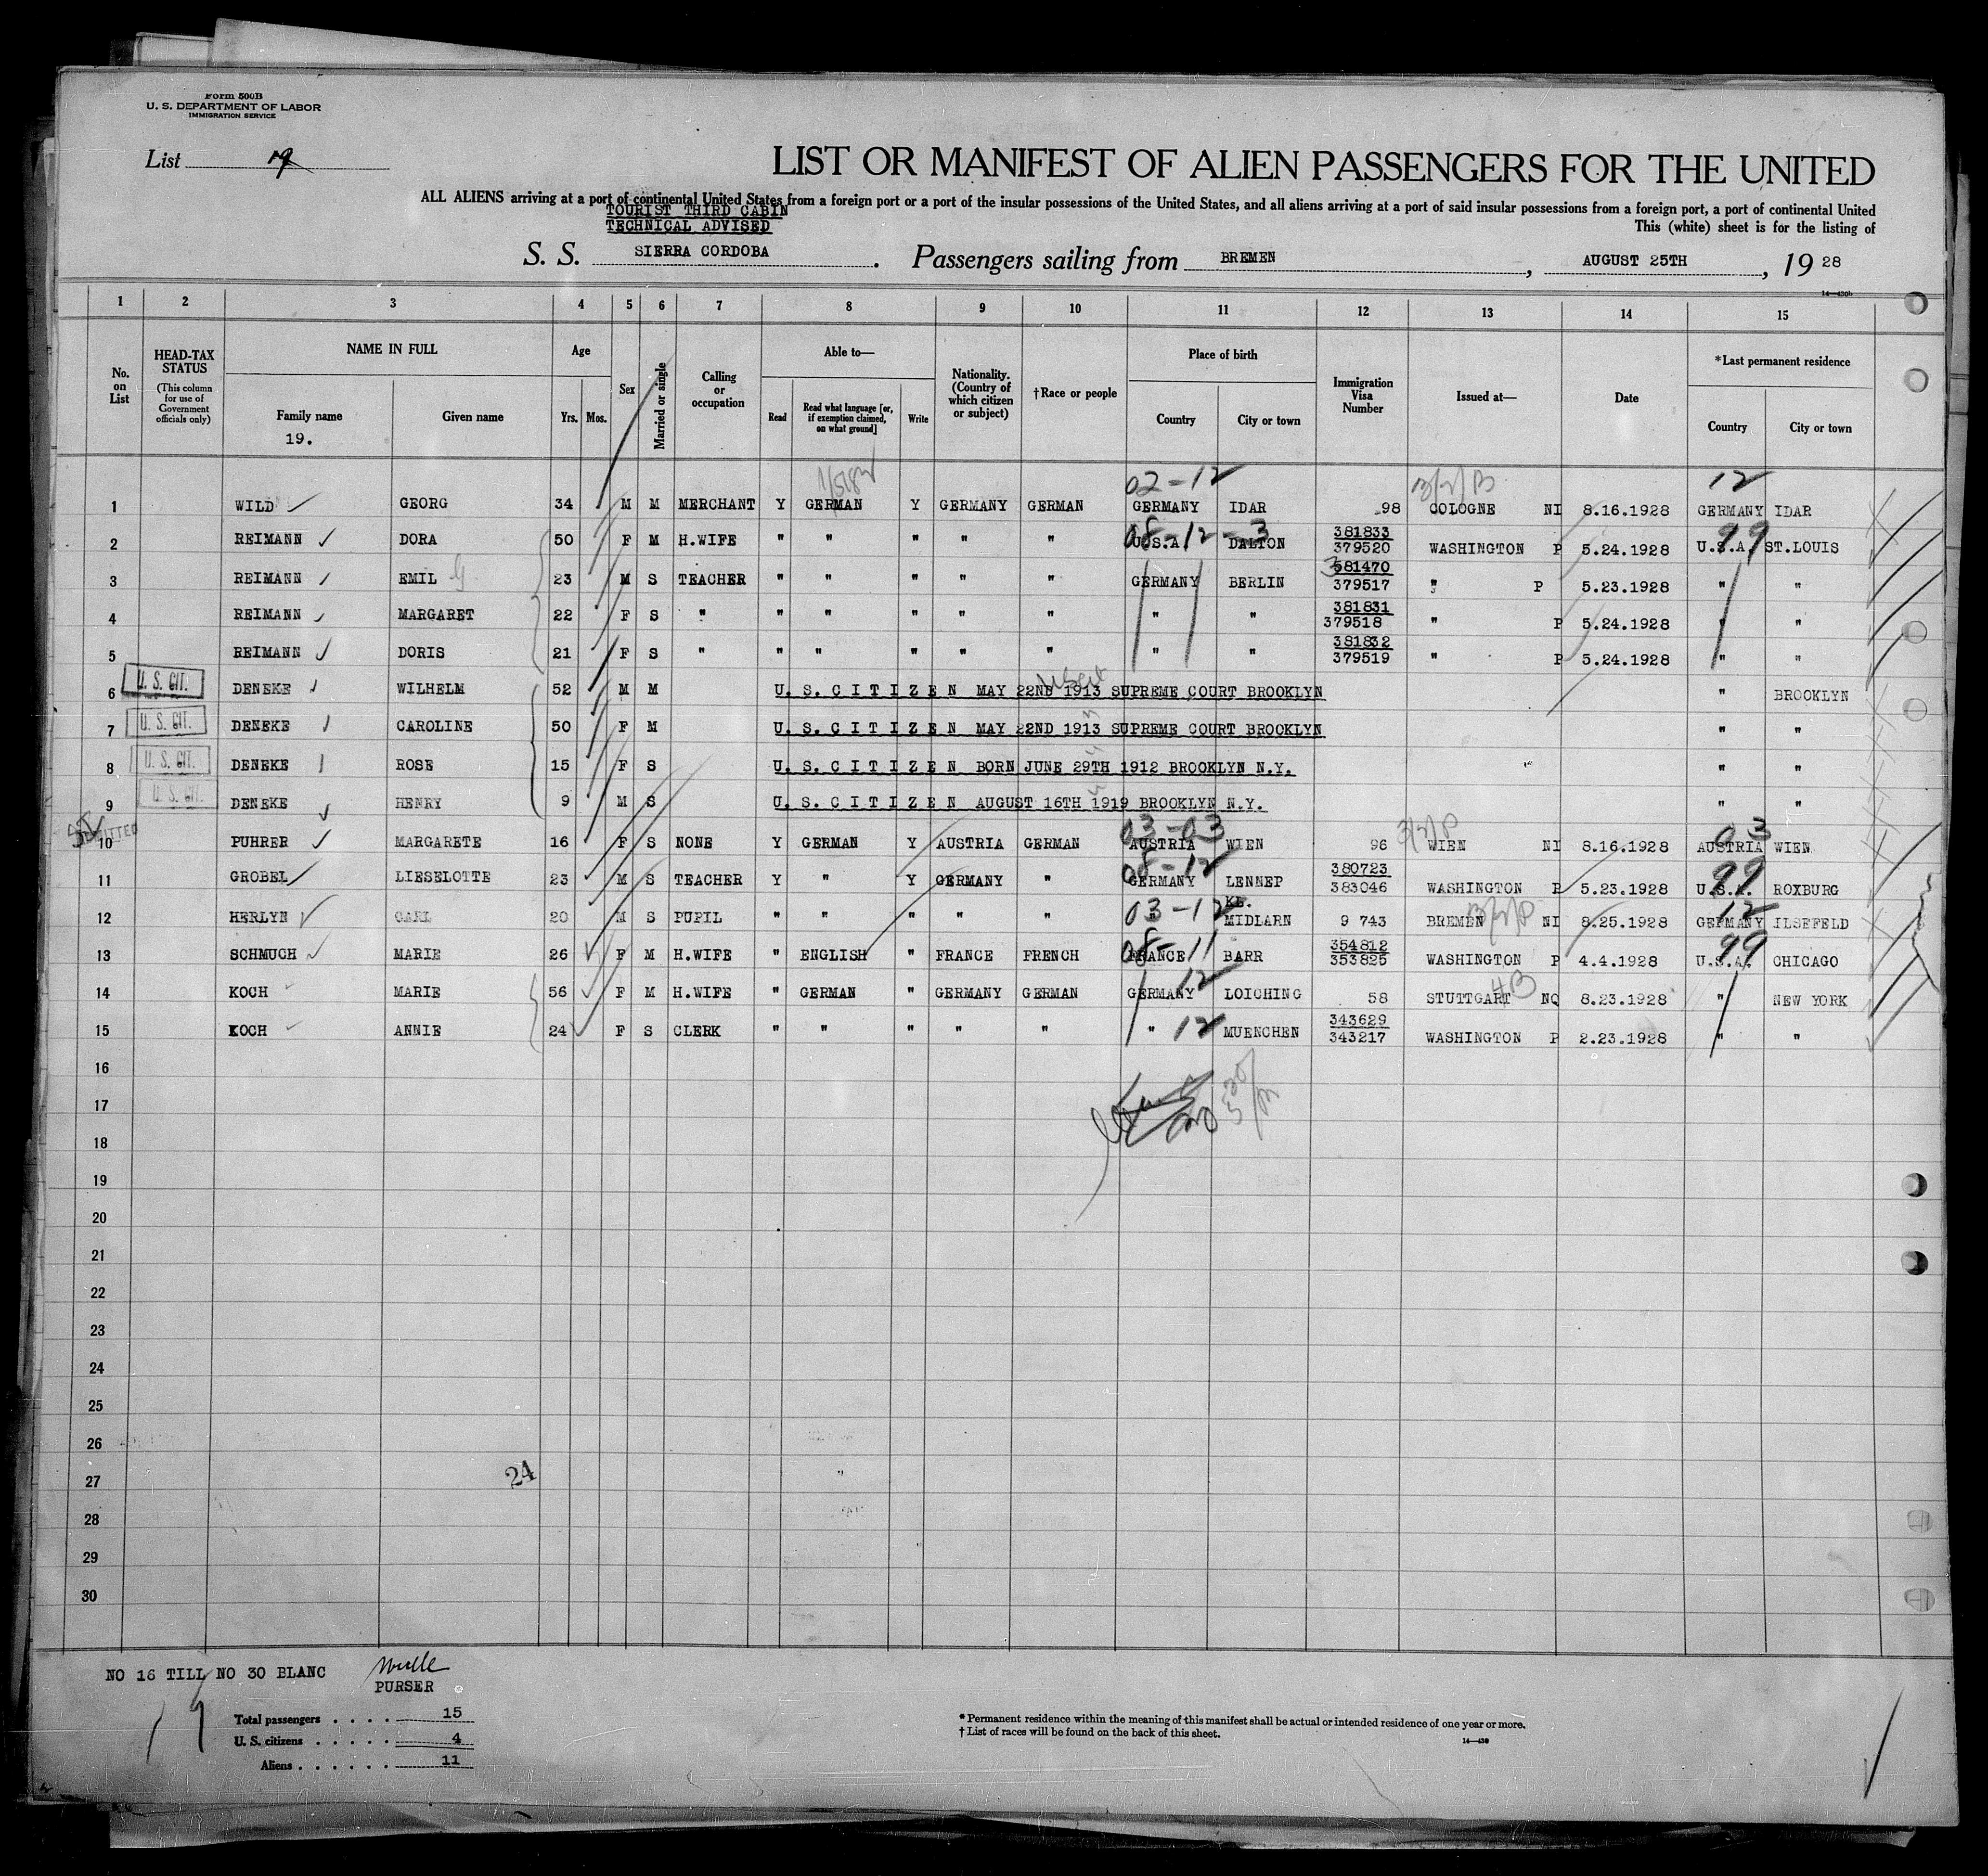 Form 500B
U. S. DEPARTMENT OF LABOR
IMMIGRATION SERVICE
List 19
LIST OR MANIFEST OF ALIEN PASSENGERS FOR THE UNITED
ALL ALIENS arriving at a port of continental United States from a foreign port or a port of the insular possessions of the United States, and all aliens arriving at a port of said insular possessions from a foreign port, a port of continental United
TOURIST THIRD CABIN
TECHNICAL ADVISED
This (white) sheet is for the listing of
S. S. SIERRA CORDOBA. Passengers sailing from BREMEN, AUGUST 25TH, 1928
14—430b
1 2 3 4 5 6 7 8 9 10 11 12 13 14 15
No. on List
HEAD-TAX STATUS (This column for use of Government officials only)
NAME IN FULL Family name Given name
19.
Age Yrs. Mos.
Sex
Married or single
Calling or occupation
Able to— Read Read what language [or, if exemption claimed, on what ground] Write
Nationality. (Country of which citizen or subject)
†Race or people
Place of birth Country City or town
Immigration Visa Number
Issued at—
Date
*Last permanent residence Country City or town
02-12 12
1 WILD GEORG 34 M M MERCHANT Y GERMAN Y GERMANY GERMAN GERMANY IDAR 98 COLOGNE NI 8.16.1928 GERMANY IDAR
08-12-3 99
2 REIMANN DORA 50 F M H.WIFE " " " " " U.S.A. DALTON 381833 379520 WASHINGTON P 5.24.1928 U.S.A. ST.LOUIS
3 REIMANN EMIL G 23 M S TEACHER " " " " " GERMANY BERLIN 381470 379517 " P 5.23.1928 " "
4 REIMANN MARGARET 22 F S " " " " " " " " 381831 379518 " P 5.24.1928 " "
5 REIMANN DORIS 21 F S " " " " " " " " 381832 379519 " P 5.24.1928 " "
U. S. CIT.
6 DENEKE WILHELM 52 M M U. S. C I T I Z E N MAY 22ND 1913 SUPREME COURT BROOKLYN " BROOKLYN
U. S. CIT.
7 DENEKE CAROLINE 50 F M U. S. C I T I Z E N MAY 22ND 1913 SUPREME COURT BROOKLYN " "
U. S. CIT.
8 DENEKE ROSE 15 F S U. S. C I T I Z E N BORN JUNE 29TH 1912 BROOKLYN N.Y. " "
U. S. CIT.
9 DENEKE HENRY 9 M S U. S. C I T I Z E N AUGUST 16TH 1919 BROOKLYN N.Y. " "
ADMITTED
03-03 03
10 PUHRER MARGARETE 16 F S NONE Y GERMAN Y AUSTRIA GERMAN AUSTRIA WIEN 96 WIEN NI 8.16.1928 AUSTRIA WIEN
08-12 99
11 GROBEL LIESELOTTE 23 M S TEACHER Y " Y GERMANY " GERMANY LENNEP 380723 383046 WASHINGTON P 5.23.1928 U.S.A. ROXBURG
03-12 12
12 HERLYN CARL 20 M S PUPIL " " " " " " MIDLARN 9 743 BREMEN NI 8.25.1928 GERMANY ILSEFELD
08-11 99
13 SCHMUCH MARIE 26 F M H.WIFE " ENGLISH " FRANCE FRENCH FRANCE BARR 354812 353825 WASHINGTON P 4.4.1928 U.S.A. CHICAGO
12
14 KOCH MARIE 56 F M H.WIFE " GERMAN " GERMANY GERMAN GERMANY LOICHING 58 STUTTGART NQ 8.23.1928 " NEW YORK
15 KOCH ANNIE 24 F S CLERK " " " " " " 12 MUENCHEN 343629 343217 WASHINGTON P 2.23.1928 " "
16
17
18
19
20
21
22
23
24
25
26
27 24
28
29
30
NO 16 TILL NO 30 BLANC
PURSER
19
Total passengers . . . . 15
U. S. citizens . . . . . 4
Aliens . . . . . . 11
* Permanent residence within the meaning of this manifest shall be actual or intended residence of one year or more.
† List of races will be found on the back of this sheet.
14—430